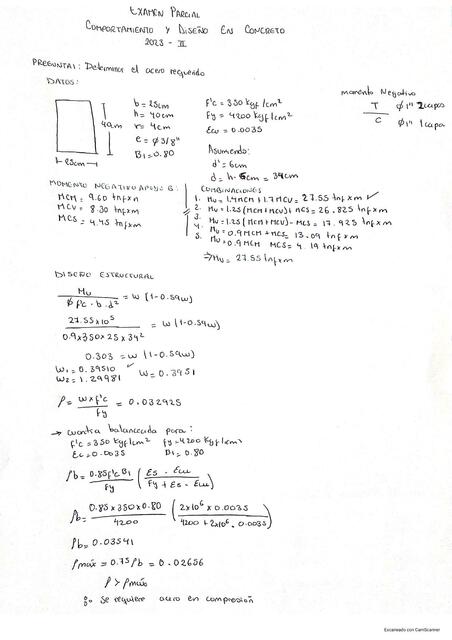 EXAMEN PARCIAL
COMPORTAMIENTO Y DISEÑO EN CONCRETO
2023 - II
PREGUNTA 1: Determinar el acero requerido
DATOS:
40cm
25cm
b = 25cm
h = 40cm
r = 4cm
e = φ3/8"
B1 = 0.80
f'c = 350 kgf/cm²
Fy = 4200 kgf/cm²
Ecu = 0.0035
Asumiendo:
d' = 6cm
d = h - 6cm = 34cm
momento Negativo
T φ1" 2 capas
C φ1" 1 capa
MOMENTO NEGATIVO APOYO B:
MCM = 9.60 tnf×m
MCV = 8.30 tnf×m
MCS = 4.45 tnf×m
COMBINACIONES
1. Mu = 1.4MCM + 1.7MCV = 27.55 tnf×m ✓
2. Mu = 1.25(MCM+MCV)+MCS = 26.825 tnf×m
3. Mu = 1.25(MCM+MCV) - MCS = 17.925 tnf×m
4. Mu = 0.9MCM + MCS = 13.09 tnf×m
5. Mu = 0.9MCM MCS = 4.19 tnf×m
⇒ Mu = 27.55 tnf×m
DISEÑO ESTRUCTURAL
Mu / φ f'c · b · d² = w (1-0.59w)
27.55×10⁵ / 0.9×350×25×34² = w (1-0.59w)
0.303 = w (1-0.59w)
W1 = 0.39510 ✓
W2 = 1.29981
W = 0.3951
ρ = w×f'c / fy = 0.032925
→ cuantia balanceada para:
f'c = 350 kgf/cm² fy = 4200 kgf/cm²
Ec = 0.0035 B1 = 0.80
ρb = 0.85f'c B1 / fy (Es · Ecu / fy + Es · Ecu)
ρb = 0.85×350×0.80 / 4200 (2×10⁶ × 0.0035 / 4200 + 2×10⁶ · 0.0035)
ρb = 0.03541
ρmáx = 0.75ρb = 0.02656
ρ > ρmáx
∴ Se requiere acero en compresión
Escaneado con CamScanner